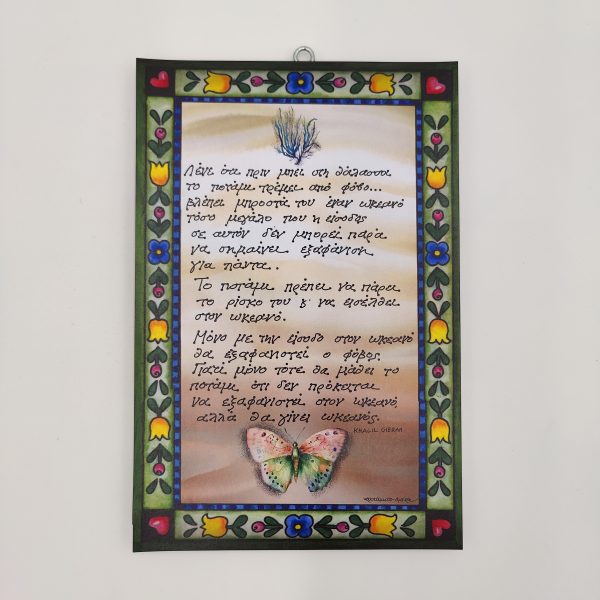 Λένε ότι πριν μπει στη θάλασσα
το ποτάμι τρέμει από φόβο...
βλέπει μπροστά του έναν ωκεανό
τόσο μεγάλο που η είσοδος
σε αυτόν δεν μπορεί παρά
να σημαίνει εξαφάνιση
για πάντα..
Το ποτάμι πρέπει να πάρει
το ρίσκο του κ' να εισέλθει
στον ωκεανό.
Μόνο με την είσοδο στον ωκεανό
θα εξαφανιστεί ο φόβος,
Γιατί μόνο τότε θα μάθει το
ποτάμι ότι δεν πρόκειται
να εξαφανιστεί στον ωκεανό,
αλλά θα γίνει ωκεανός.
KHALIL GIBRAN